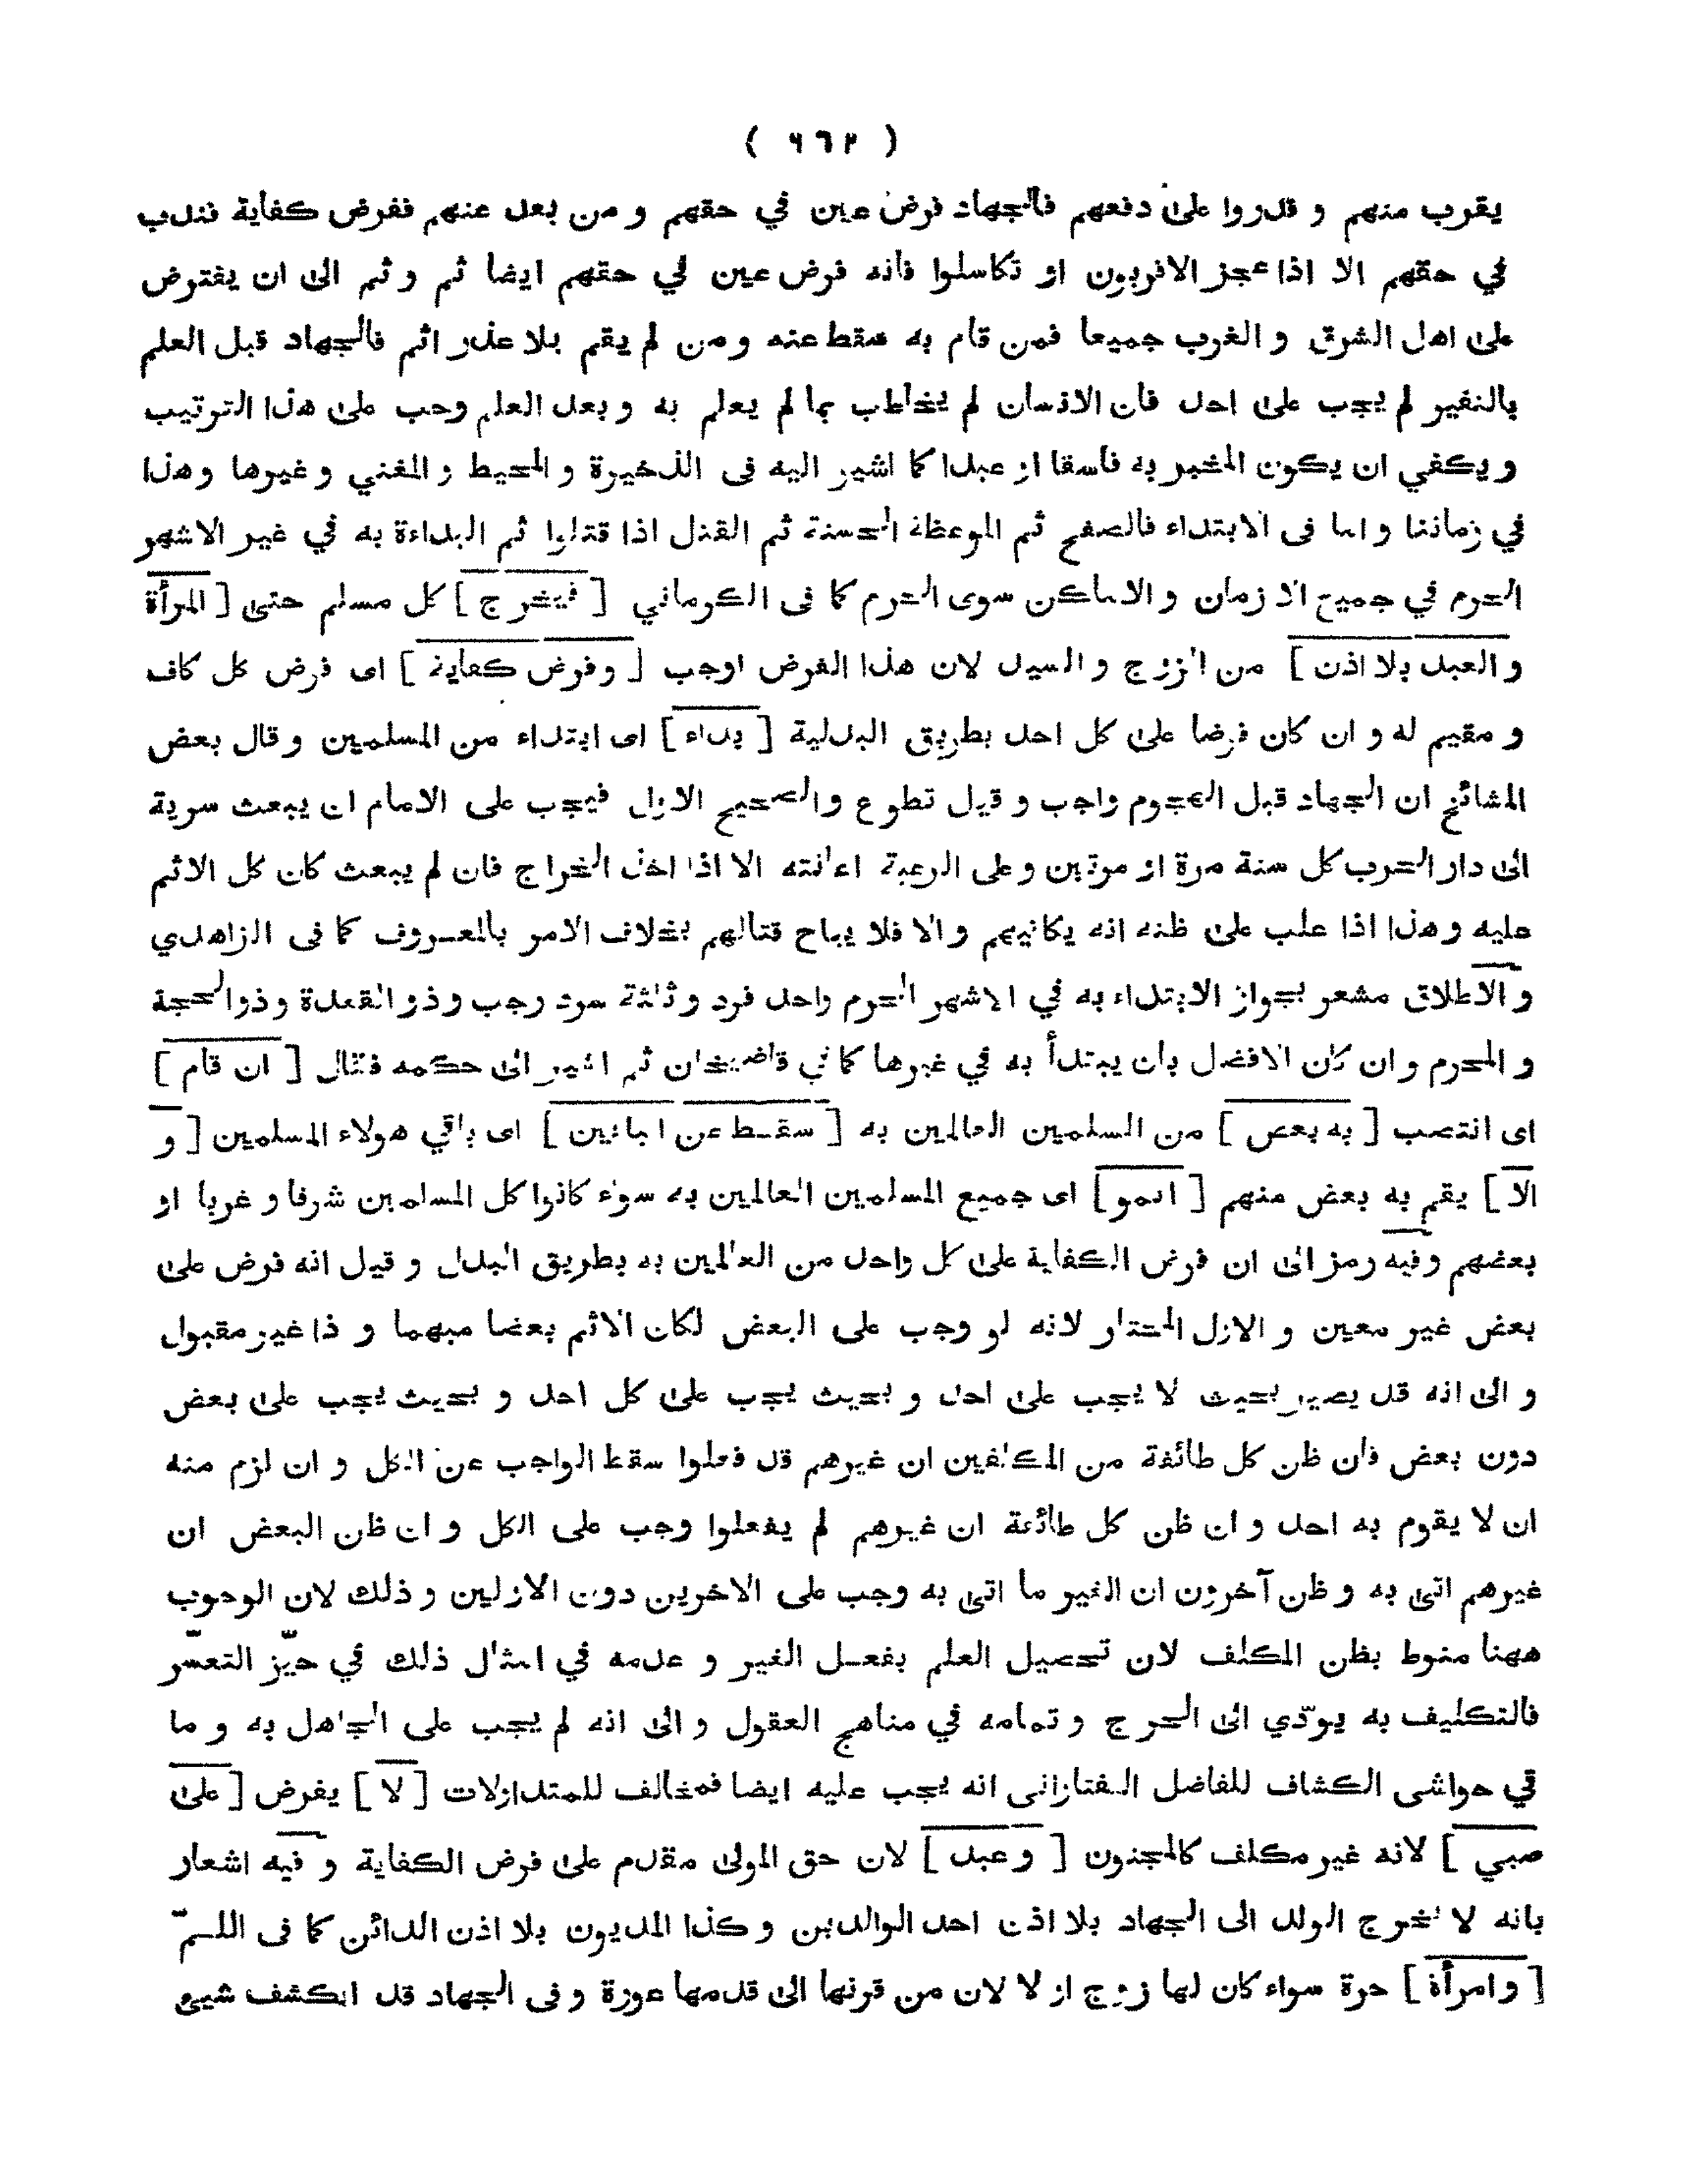 ( ٩٦٢ )
يقرب منهم و قدروا على دفعهم فالجهاد فرض عين في حقهم و من بعد عنهم ففرض كفاية فندب
في حقهم الا اذا عجز الاقربون او تكاسلوا فانه فرض عين في حقهم ايضا ثم و ثم الى ان يفترض
على اهل الشرق و الغرب جميعا فمن قام به سقط عنه و من لم يقم بلا عذر اثم فالجهاد قبل العلم
بالنفير لم يجب على احد فان الانسان لم يخاطب بما لم يعلم به و بعد العلم وجب على هذا الترتيب
و يكفي ان يكون المخبر به فاسقا او عبدا كما اشير اليه فى الذخيرة و المحيط و المغني و غيرها وهذا
في زماننا و اما فى الابتداء فالصفح ثم الموعظة الحسنة ثم القتل اذا قتلوا ثم البداءة به في غير الاشهر
الحرم في جميع الا زمان و الاماكن سوى الحرم كما فى الكرماني [ فيخرج ] كل مسلم حتى [ المرأة
و العبد بلا اذن ] من الزوج و السيد لان هذا الفرض اوجب [ وفرض كفاية ] اى فرض كل كاف
و مقيم له و ان كان فرضا على كل احد بطريق البدلية [ بداء ] اى ابتداء من المسلمين و قال بعض
المشائخ ان الجهاد قبل الهجوم واجب و قيل تطوع والصحيح الاول فيجب على الامام ان يبعث سرية
الى دار الحرب كل سنة مرة او مرتين و على الرعية اعانته الا اذا اخذ الخراج فان لم يبعث كان كل الاثم
عليه و هذا اذا غلب على ظنه انه يكافيهم و الا فلا يباح قتالهم بخلاف الامر بالمعروف كما فى الزاهدي
و الاطلاق مشعر بجواز الابتداء به في الاشهر الحرم واحد فرد و ثلثة سرد رجب و ذو القعدة و ذو الحجة
و المحرم و ان كان الافضل بان يبتدأ به في غيرها كما في قاضيخان ثم اشير الى حكمه فقال [ ان قام ]
اى انتصب [ به بعض ] من المسلمين العالمين به [ سقط عن الباقين ] اى باقي هولاء المسلمين [ و
الا ] يقم به بعض منهم [ اثمو ] اى جميع المسلمين العالمين به سوء كانوا كل المسلمين شرقا و غربا او
بعضهم و فيه رمز الى ان فرض الكفاية على كل واحد من العالمين به بطريق البدل و قيل انه فرض على
بعض غير معين و الاول المختار لانه لو وجب على البعض لكان الاثم بعضا مبهما و ذا غير مقبول
و الى انه قد يصير بحيث لا يجب على احد و بحيث يجب على كل احد و بحيث يجب على بعض
دون بعض فان ظن كل طائفة من المكلفين ان غيرهم قد فعلوا سقط الواجب عن الكل و ان لزم منه
ان لا يقوم به احد و ان ظن كل طائفة ان غيرهم لم يفعلوا وجب على الكل و ان ظن البعض ان
غيرهم اتى به و ظن آخرون ان الغير ما اتى به وجب على الاخرين دون الاولين و ذلك لان الوجوب
ههنا منوط بظن المكلف لان تحصيل العلم بفعل الغير و عدمه في امثال ذلك في حيّز التعسّر
فالتكليف به يودّي الى الحرج و تمامه في مناهج العقول و الى انه لم يجب على الجاهل به و ما
في حواشى الكشاف للفاضل التفتازانى انه يجب عليه ايضا فمخالف للمتداولات [ لا ] يفرض [ على
صبي ] لانه غير مكلف كالمجنون [ و عبد ] لان حق المولى مقدم على فرض الكفاية و فيه اشعار
بانه لا يخرج الولد الى الجهاد بلا اذن احد الوالدين و كذا المديون بلا اذن الدائن كما فى
[ و امرأة ] حرة سواء كان لها زوج او لا لان من قرنها الى قدمها عورة و فى الجهاد قد انكشف شيئ